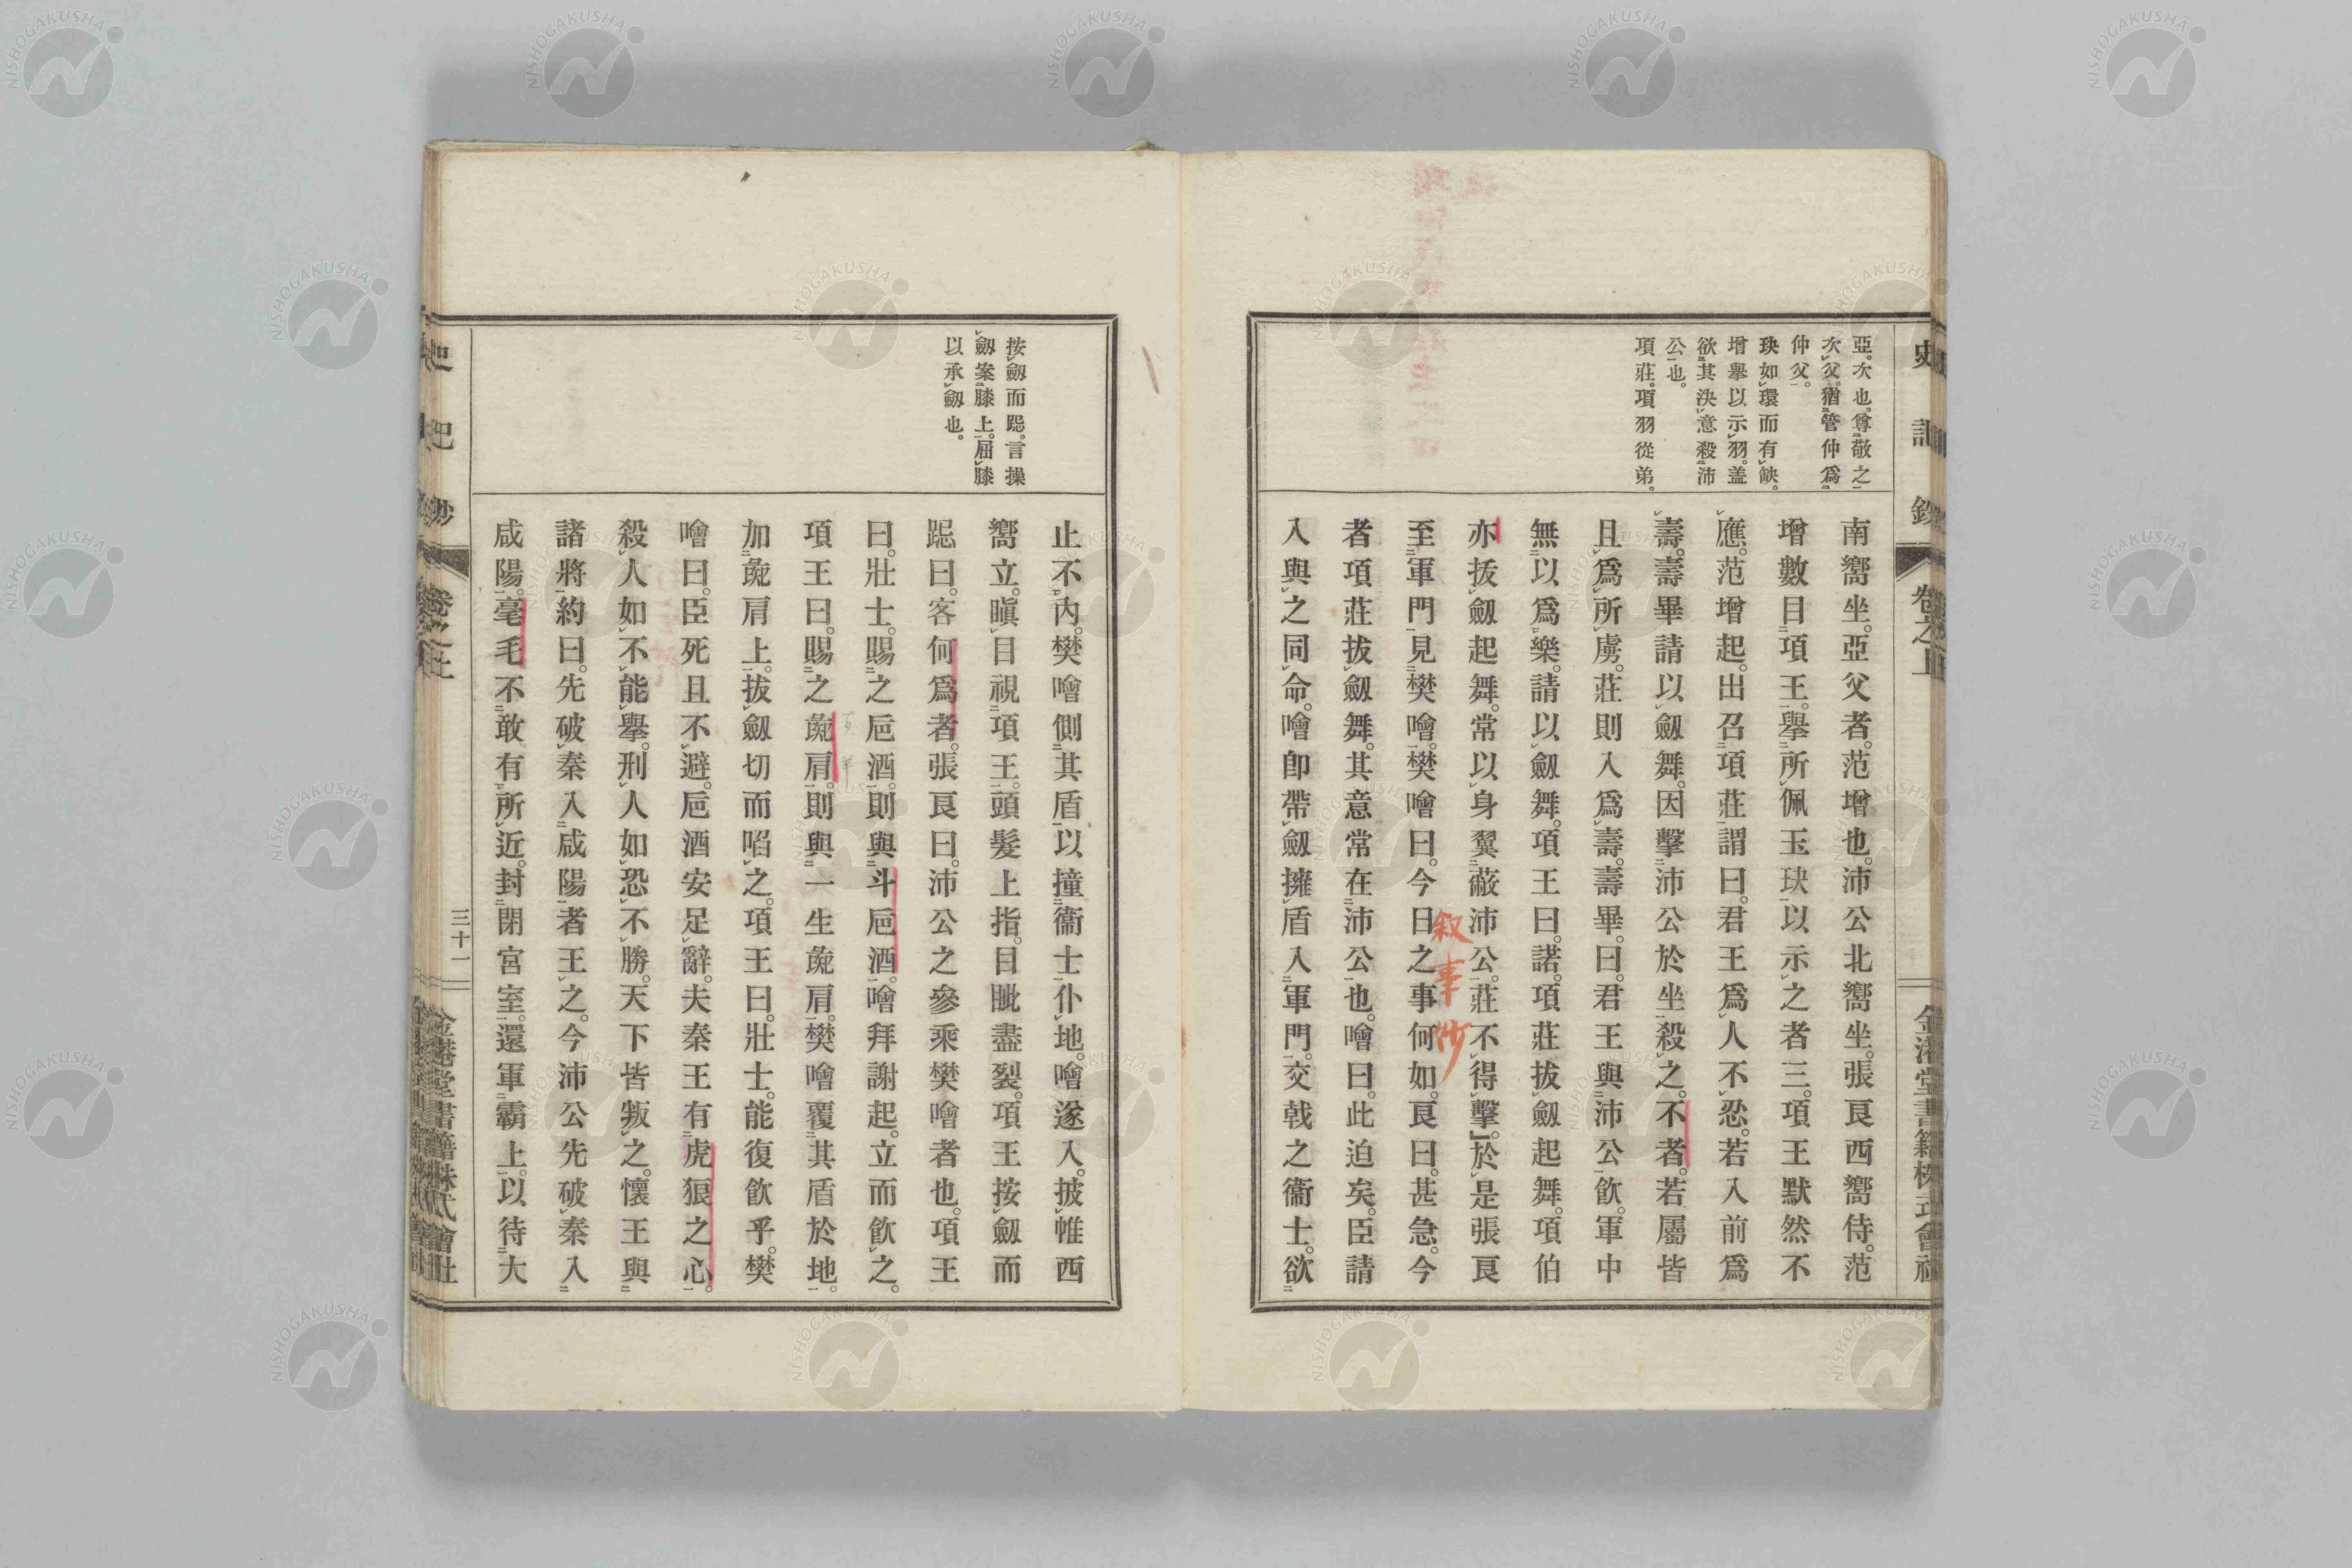 史記鈔
卷之上
金港堂書籍株式會社
亞。次也。尊敬之
次父。猶管仲爲
仲父。
玦如環而有缺。
增擧以示羽。蓋
欲其決意殺沛
公也。
項莊。項羽從弟。
南嚮坐。亞父者。范增也。沛公北嚮坐。張良西嚮侍。范
增數目項王。擧所佩玉玦以示之者三。項王默然不
應。范增起。出召項莊謂曰。君王爲人不忍。若入前爲
壽。壽畢請以劔舞。因擊沛公於坐殺之。不者。若屬皆
且爲所虜。莊則入爲壽。壽畢。曰。君王與沛公飮。軍中
無以爲樂。請以劔舞。項王曰。諾。項莊拔劔起舞。項伯
亦拔劔起舞。常以身翼蔽沛公。莊不得擊。』於是張良
至軍門見樊噲。樊噲曰。今日之事何如。良曰。甚急。今
者項莊拔劔舞。其意常在沛公也。噲曰。此迫矣。臣請
入與之同命。噲卽帶劔擁盾入軍門。交戟之衞士。欲
叙事妙
按劔而跽。言操
劔案膝上。屈膝
以承劔也。
止不內。樊噲側其盾以撞衞士仆地。噲遂入。披帷西
嚮立。瞋目視項王。頭髮上指。目眦盡裂。項王按劔而
跽曰。客何爲者。張良曰。沛公之參乘樊噲者也。項王
曰。壯士。賜之巵酒。則與斗巵酒。噲拜謝起。立而飮之。
項王曰。賜之彘肩。則與一生彘肩。樊噲覆其盾於地。
加彘肩上。拔劔切而啗之。項王曰。壯士。能復飮乎。樊
噲曰。臣死且不避。巵酒安足辭。夫秦王有虎狼之心。
殺人如不能擧。刑人如恐不勝。天下皆叛之。懷王與
諸將約曰。先破秦入咸陽者王之。今沛公先破秦入
咸陽。毫毛不敢有所近。封閉宮室。還軍霸上。以待大
史記鈔
卷之上
三十一
金港堂書籍株式會社
NISHOGAKUSHA